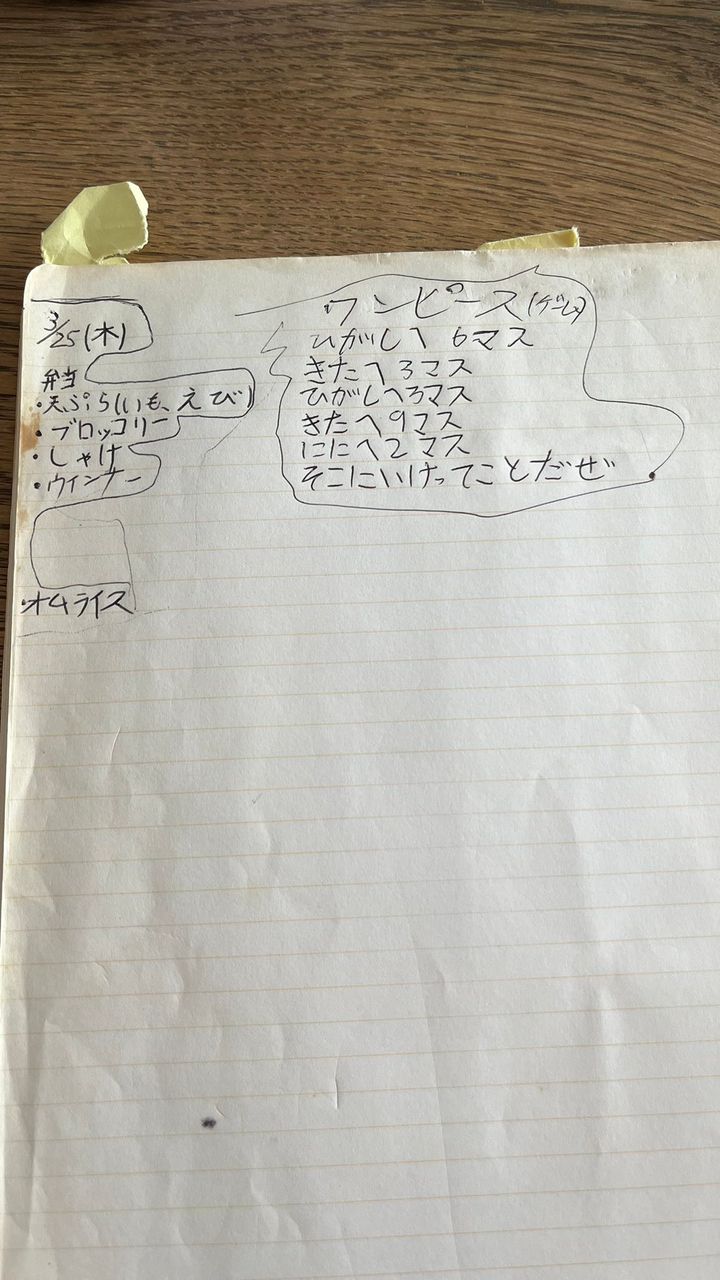 3/25(木)
弁当
・天ぷら(いも、えび)
・ブロッコリー
・しゃけ
・ウインナー
・オムライス
ワンピース(ゲーム)
ひがしへ 6マス
きたへ3マス
ひがしへ3マス
きたへ9マス
ににへ2マス
そこにいけってことだぜ